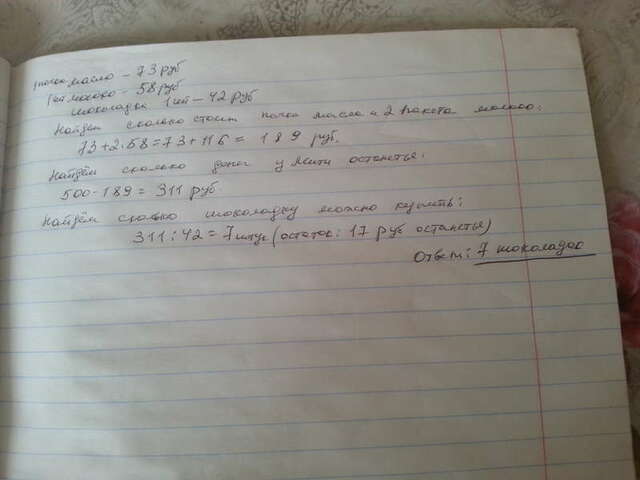 1 пачка масло – 73 руб
1 пт молоко – 58 руб
шоколадка 1 шт – 42 руб
Найдём сколько стоит пачка масла и 2 пакета молоко:
73+2·58=73+116= 189 руб.
Найдём сколько денег у Мити останется:
500-189= 311 руб.
Найдём сколько шоколадку можно купить:
311:42= 7 штук (остаток: 17 руб останется)
Ответ: 7 шоколадок